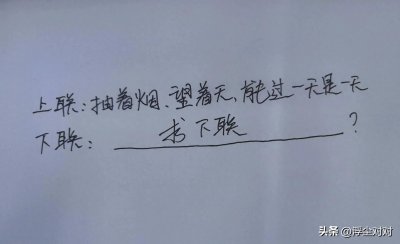 上联:抽着烟、望着天,能过一天是一天
下联: 求下联 ?
头条 @浮尘对对